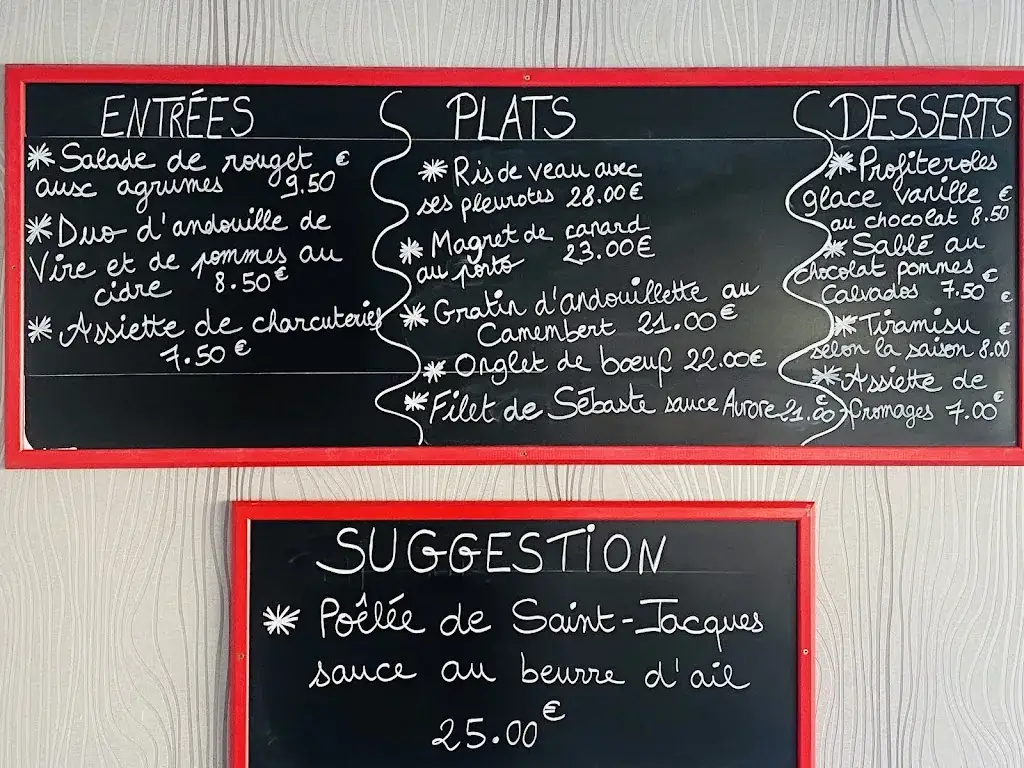 ENTRÉES
* Salade de rouget €
aux agrumes 9.50
* Duo d'andouille de
Vire et de pommes au
cidre 8.50€
* Assiette de charcuteries
7.50€
PLATS
* Ris de veau avec
ses pleurotes 28.00€
* Magret de canard
au porto 23.00€
* Gratin d'andouillette au
Camembert 21.00€
* Onglet de bœuf 22.00€
* Filet de Sébaste sauce Aurore 21.00€
DESSERTS
* Profiteroles
glace vanille €
au chocolat 8.50
* Sablé au
chocolat pommes €
Calvados 7.50
* Tiramisu €
selon la saison 8.00
* Assiette de
fromages 7.00€
SUGGESTION
* Poêlée de Saint-Jacques
sauce au beurre d'ail
25.00€